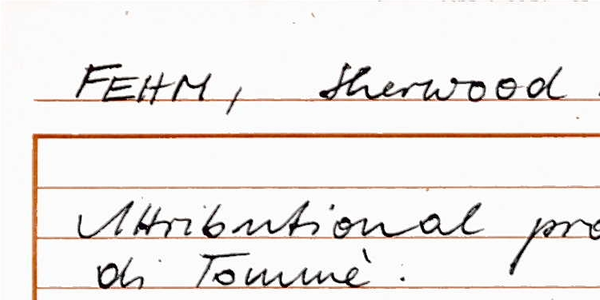 FEHM, Sherwood
Attributional pro
di Tommè.